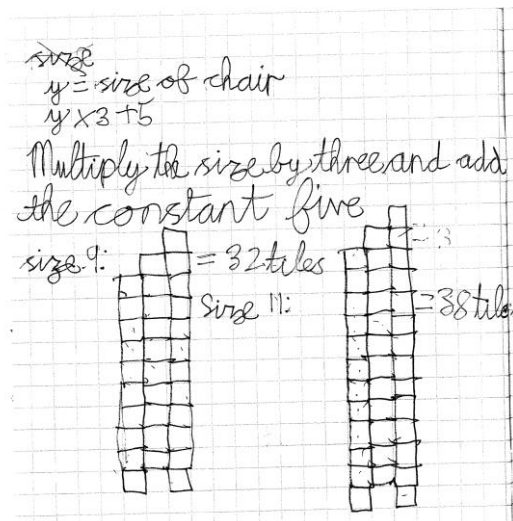 size
y = size of chair
y x 3 + 5
Multiply the size by three and add
the constant five
size 9: = 32 tiles
Size 11: = 38 tiles